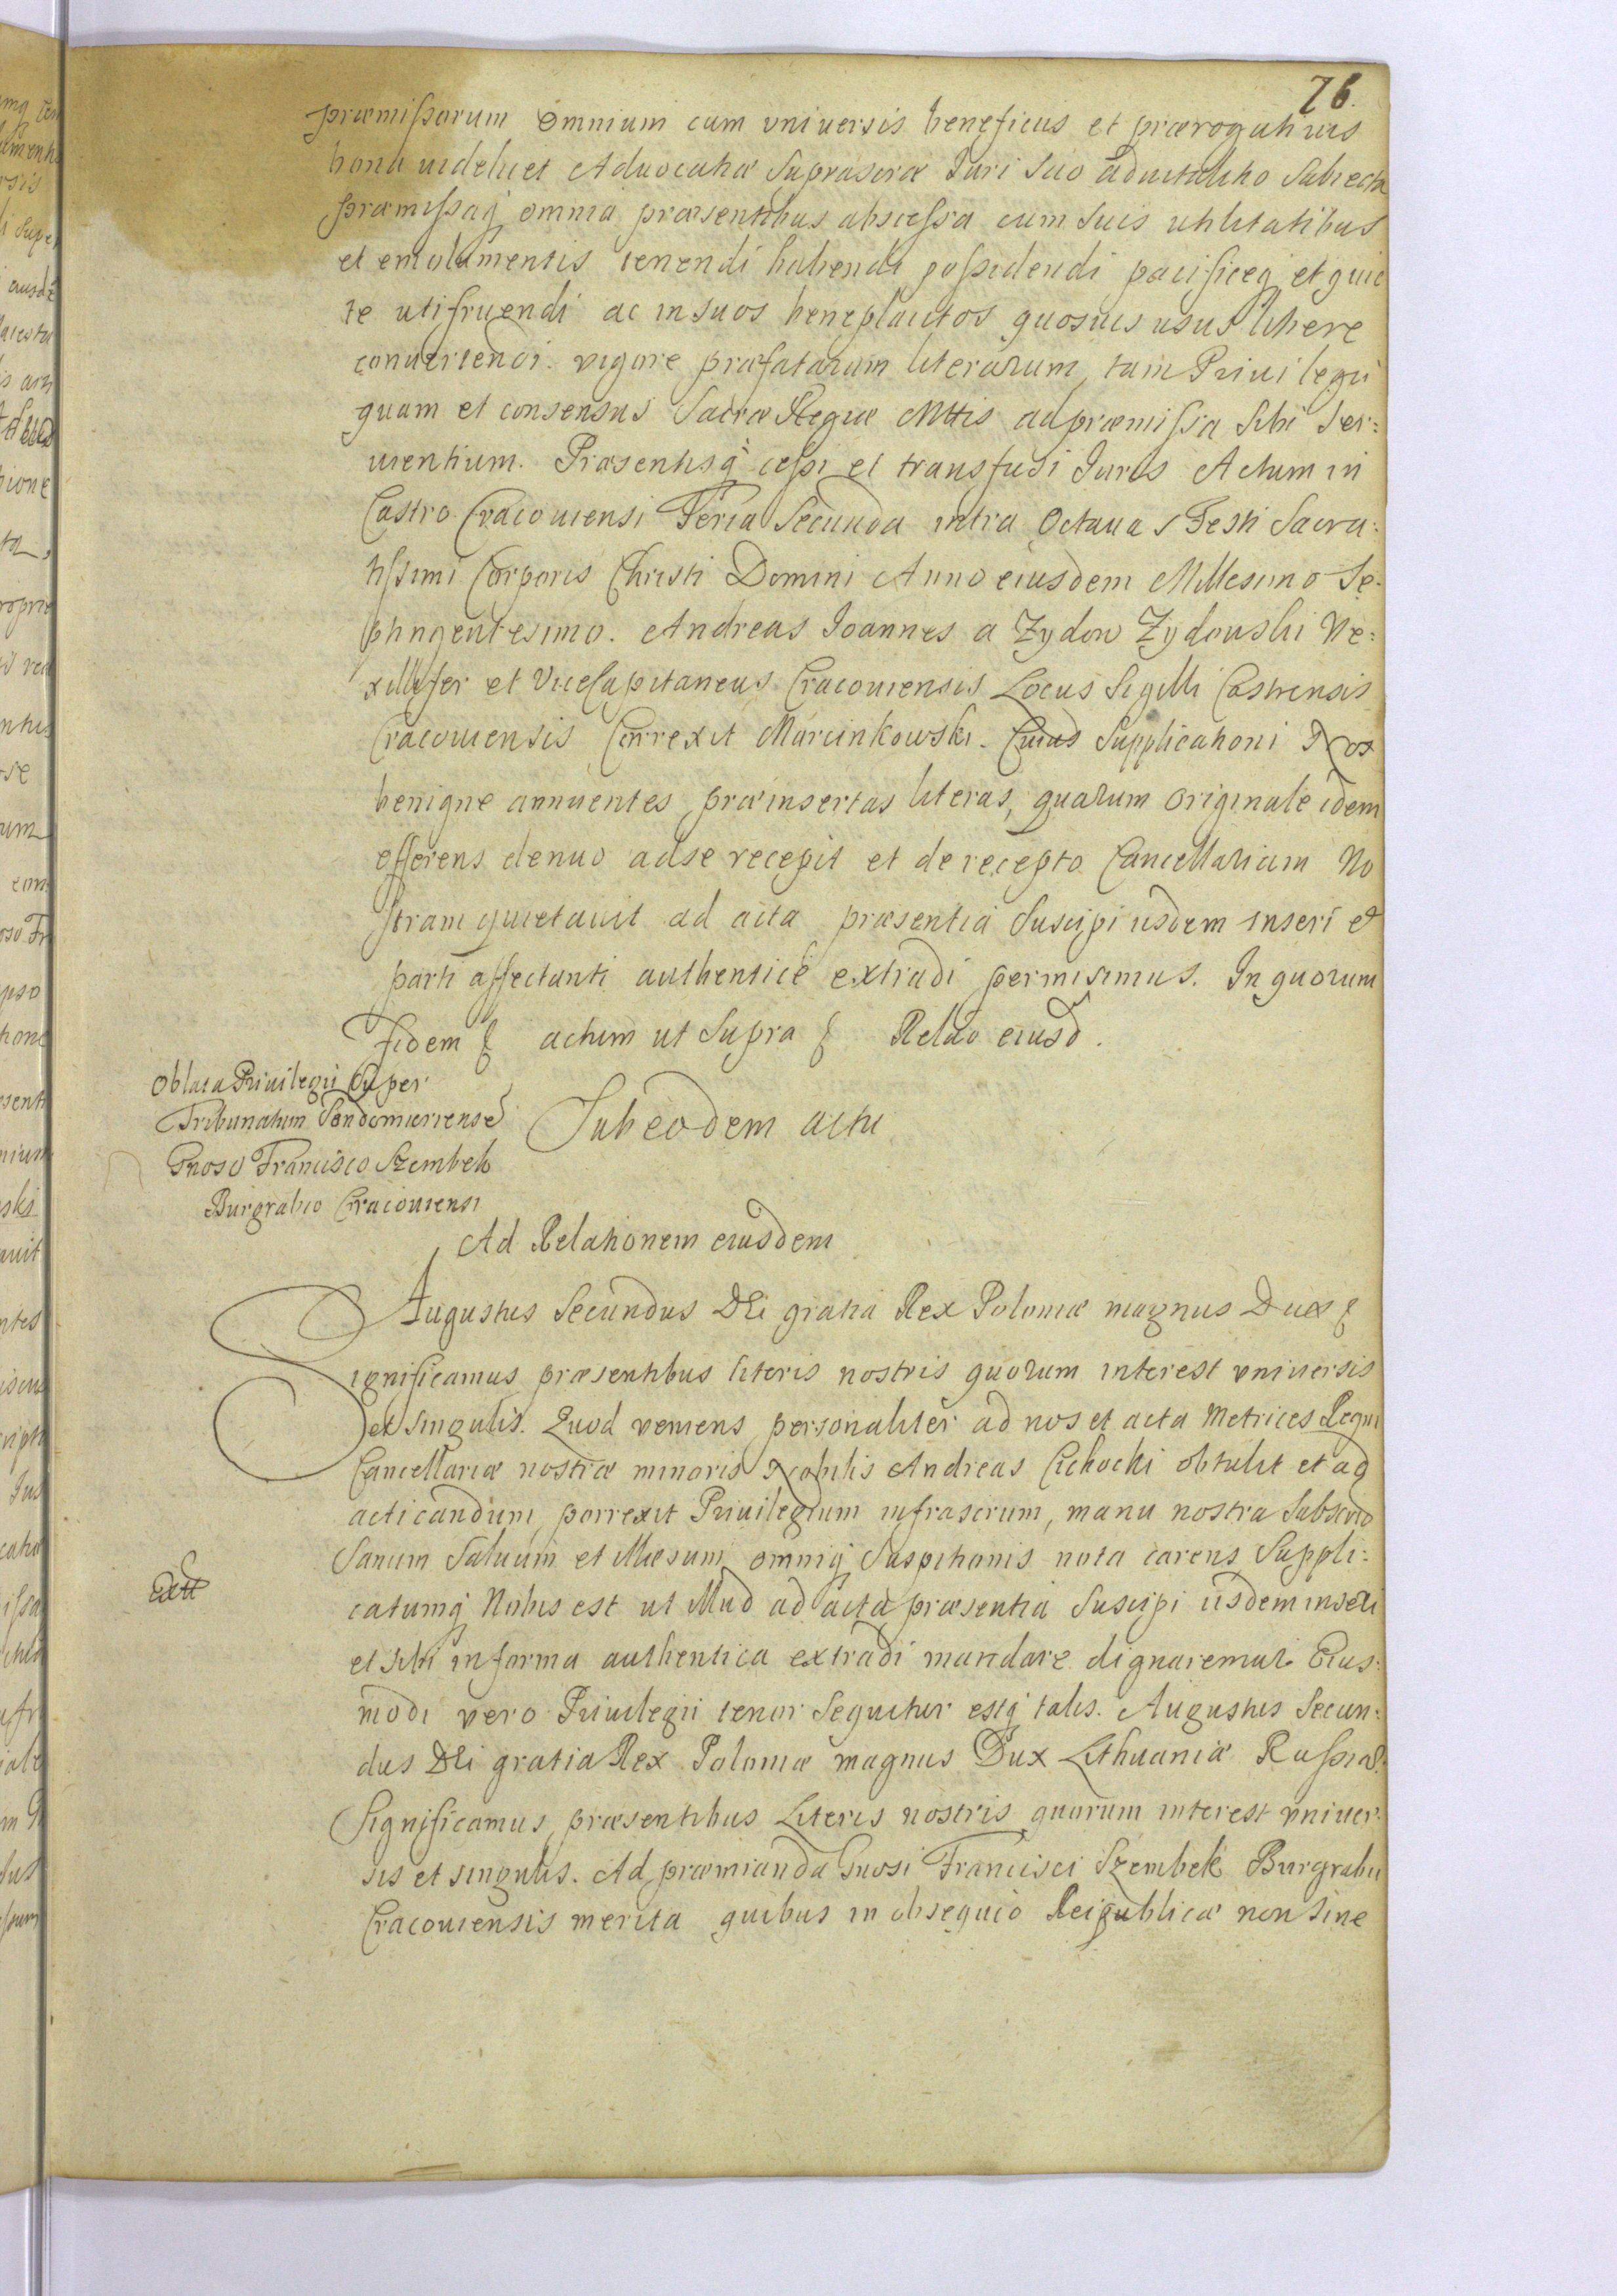 76.
præmissorum omnium cum vniuersis beneficijs et prærogatiuis
bona uidelicet Aduocatiæ Suprascræ Juri Suo aduitalitio Subiecta
præmissaq omnia præsentibus abscessa cum Suis utilitatibus
et emolumentis tenendi habendi possidendi pacificeq et quie
te utifruendi ac in suos beneplacitos quosuis usus libere
conuertendi. vigore præfatarum literarum, tam Priuilegii
quam et consensus Sacræ Regiæ Mttis ad præmissa Sibi Ser:
uientium. Præsentisq cessi et transfusi Juris Actum in
Castro Cracouiensi Feria Secunda intra Octauas Festi Sacra:
tissimi Corporis Christi Domini Anno eiusdem Millesimo Se:
ptingentesimo. Andreas Joannes a Zydow Zydowski Ve:
xillifer et ViceCapitaneus Cracouiensis Locus Sigilli Castrensis
Cracouiensis Correxit Marcinkowski. Cuius Supplicationi Nos
benigne annuentes, præinsertas literas, quarum originale idem
efferens denuo ad se recepit et de recepto Cancellariam No
stram quietauit ad acta præsentia Suscipi iisdem inseri et
parti affectanti authentice extradi permisimus. In quorum
fidem actum ut Supra Relao eiusd.
Oblata Priuilegii Super
Tribunatum Sandomiriense
Gnoso Francisco Szembek
Burgrabio Cracouiensi
Sub eodem actu
Ad Relationem eiusdem
Augustus Secundus DEi gratia Rex Poloniæ magnus Dux
Significamus præsentibus literis nostris quorum interest vniuersis
et singulis. Quod veniens personaliter ad nos et acta Metrices Regni
Cancellariæ nostræ minoris Nobilis Andreas Cichocki obtulit et ad
acticandum porrexit Priuilegium infrascrum, manu nostra Subscrio
Sanum Saluum et illæsum omniq Suspitionis nota carens Suppli:
catumq Nobis est ut illud ad acta præsentia Suscipi iisdem inseri
et sibi in forma authentica extradi mandare dignaremur. Eius:
modi vero Priuilegii tenor Sequitur estq talis. Augustus Secun:
dus DEi gratia Rex Poloniæ magnus Dux Lithuaniæ Russiæ
Significamus præsentibus Literis nostris quorum interest vniuer:
sis et singulis. Ad præmianda Gnosi Francisci Szembek Burgrabii
Cracouiensis merita quibus in obsequio Reipublicæ non sine